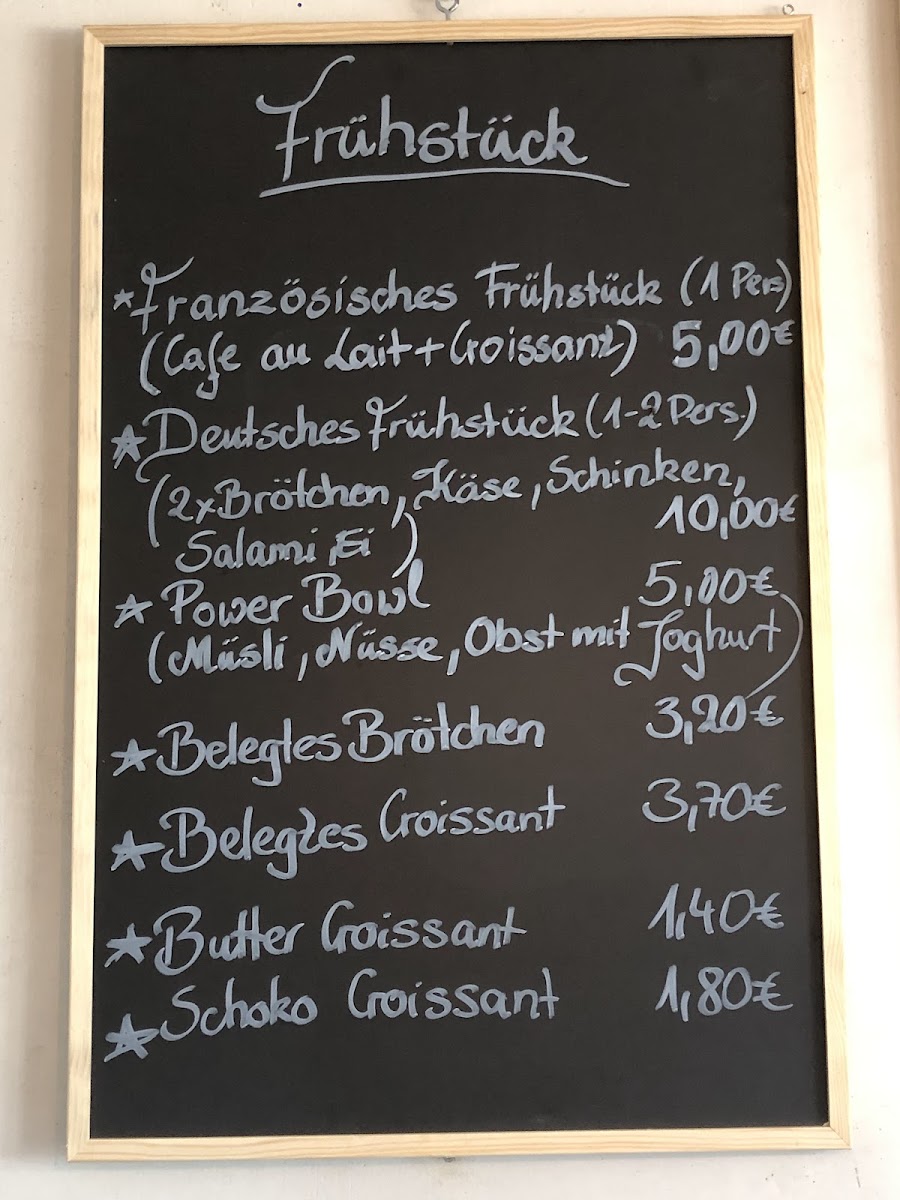 Frühstück
* Französisches Frühstück (1 Pers)
(Cafe au Lait + Croissant) 5,00€
* Deutsches Frühstück (1-2 Pers.)
(2x Brötchen, Käse, Schinken,
10,00€
Salami, Ei)
* Power Bowl 5,00€
(Müsli, Nüsse, Obst mit Joghurt)
* Belegtes Brötchen 3,20€
* Belegtes Croissant 3,70€
* Butter Croissant 1,40€
* Schoko Croissant 1,80€